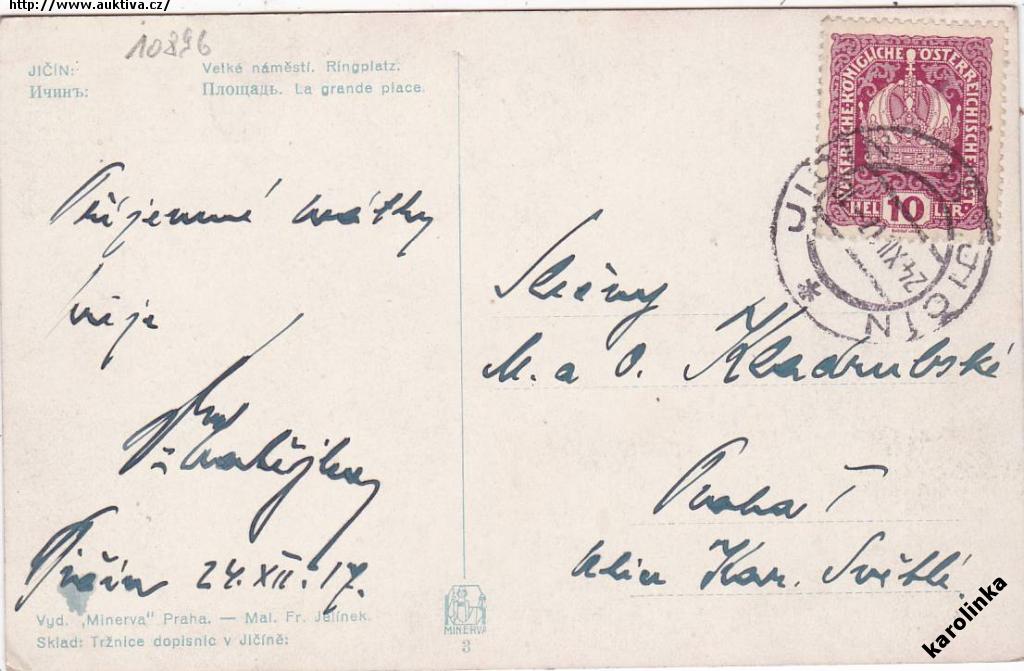 http://www.auktiva.cz/
10896
JIČÍN: Velké náměstí. Ringplatz.
Ичинъ: Площадь. La grande place.
Příjemné svátky
přeje
Jičín 24.XII.17.
Vyd. „Minerva" Praha. — Mal. Fr. Jelínek.
Sklad: Tržnice dopisnic v Jičíně:
MINERVA
3
KAISERLICHE KÖNIGLICHE ÖSTERREICHISCHE POST
HEL 10 LER
JIČÍN JIČÍN
24.XII.17
Slečny
M. a O. Kladrubské
Praha I
ulice Kar. Světlé.
karolinka